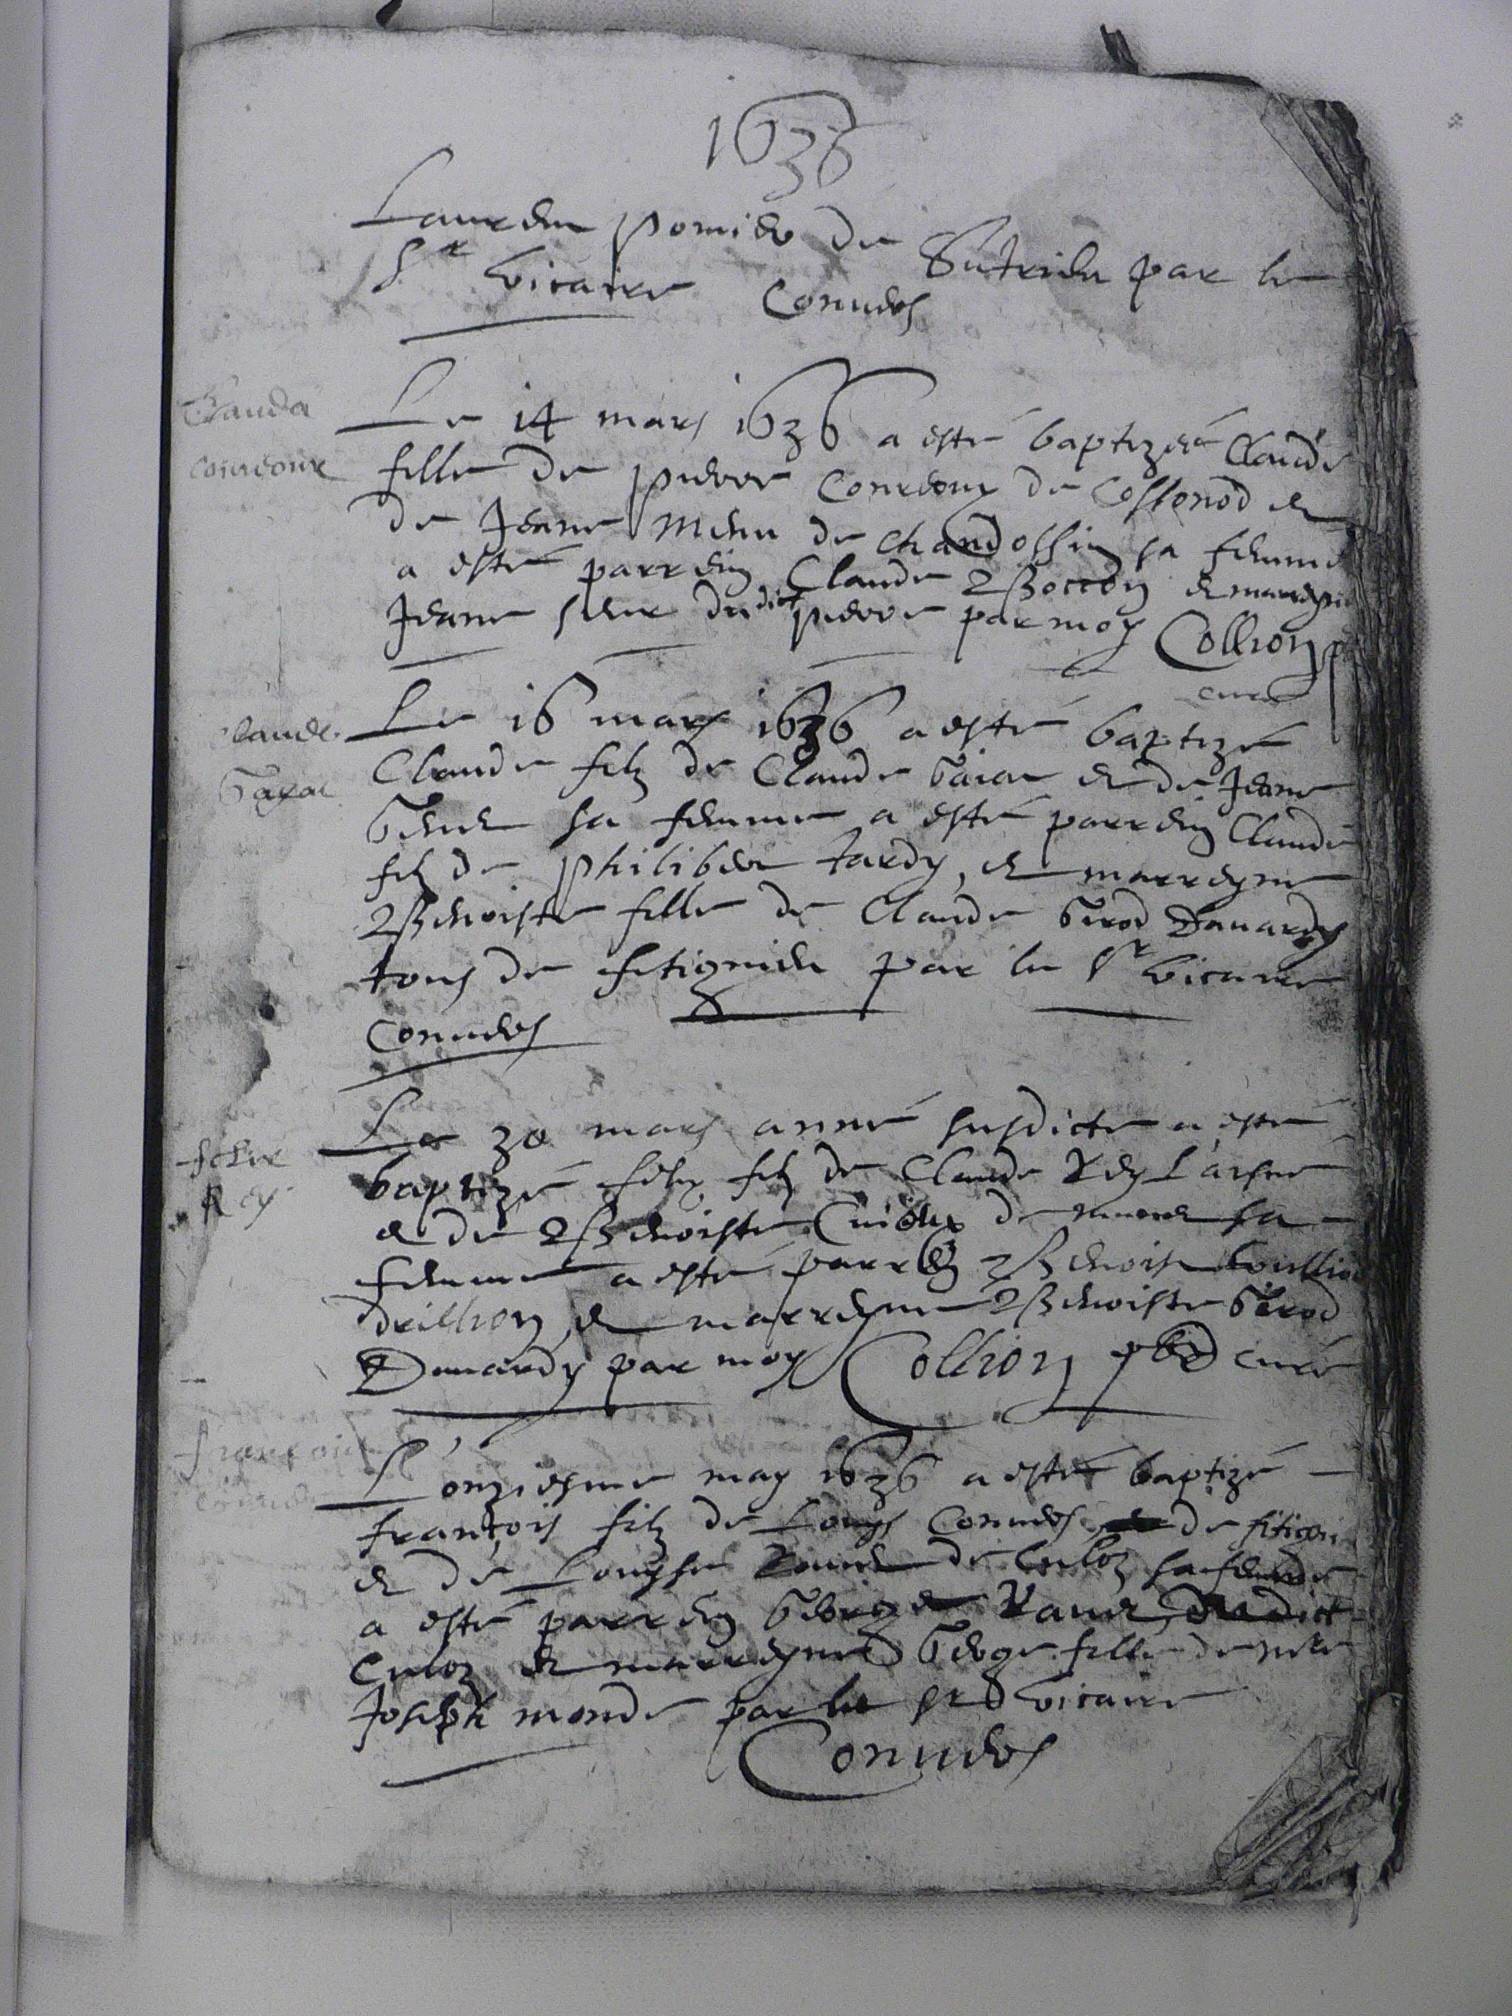 1636
Laurent pomier de Sutrieu par le
Sr vicaire Conuers
Clauda
Courdoux
Le 14 mars 1636 a esté baptizeé Claude
fille de pierre Courdoux de Cossonod et
de Jeane de Chandossin sa femme
a esté parrein Claude Boccon et marreyne
Jeane seur dudict pierre par moy Collion
curé
Claude
Le 16 mars 1636 a esté baptizé
Claude filz de Claude et de Jeane
sa femme a esté parrein Claude
filz de philibert tardy, et marreyne
Benoiste fille de Claude Girod Dauardy
tous de fitignieu par le Sr vicaire
Conuers
felix
Rey
Le 30 mars anné susdicte a esté
baptizé felix filz de Claude Rey L'aisne
et de Benoiste de sa
femme a esté parrein Benoist
et marreyne Benoiste Girod
Dauardy par moy Collion pbre curé
françois
Conuers
L'onziesme may 1636 a esté baptizé
françois filz de Louys Conuers de fitignieu
et de Louyse de Culoz sa femme
a esté parrein George Rauier dudict
Culoz et marreyne George fille de
Joseph monde par le Sr vicaire
Conuers